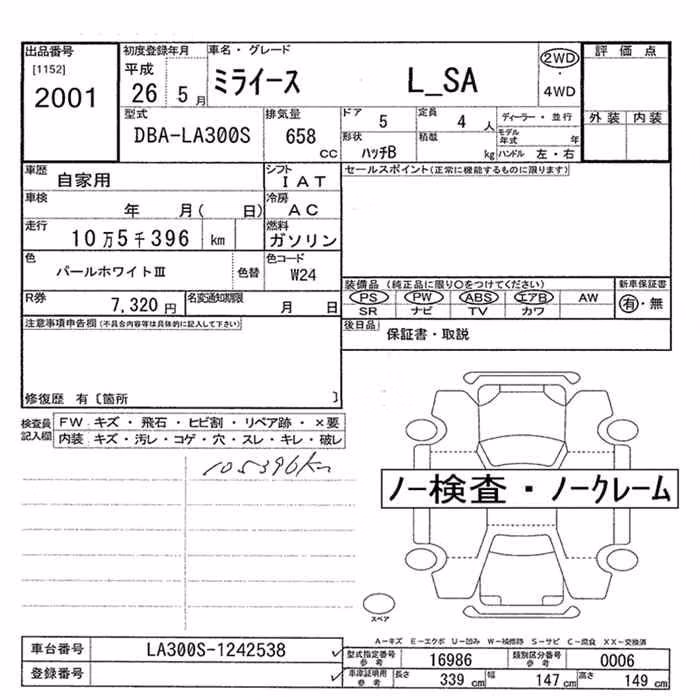 出品番号 初度登録年月 車名・グレード 2WD 評価点
[1152] 平成 ・
2001 26 5月 ミライース L_SA 4WD
型式 排気量 ドア 5 定員 4 人 ディーラー・並行 外装 内装
DBA-LA300S 658 CC 形状 ハッチB 積載 kg モデル年式 年
ハンドル 左・右
車歴 自家用 シフト IAT セールスポイント(正常に機能するものに限ります)
車検 年 月( 日) 冷房 AC
走行 10万5千396 km 燃料 ガソリン
色 パールホワイトⅢ 色替 色コード W24
装備品(純正品に限り○をつけてください) 新車保証書
PS PW ABS エアB AW 有・無
SR ナビ TV カワ
R券 7,320円 名変通知期限 月 日
注意事項申告欄(不具合内容等は具体的に記入して下さい) 後日品 保証書・取説
修復歴 有〔箇所 〕
検査員記入欄 FW キズ・飛石・ヒビ割・リペア跡・×要
内装 キズ・汚レ・コゲ・穴・スレ・キレ・破レ
105396km
ノー検査・ノークレーム
スペア
A-キズ E-エクボ U-凹み W-補修跡 S-サビ C-腐食 XX-交換済
車台番号 LA300S-1242538 型式指定番号参考 16986 類別区分番号参考 0006
登録番号 車庫証明用参考 長さ 339 cm 幅 147 cm 高さ 149 cm